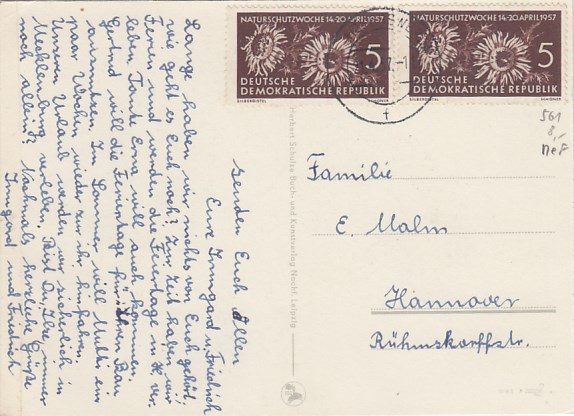 NATURSCHUTZWOCHE 14-20. APRIL 1957
5
DEUTSCHE
DEMOKRATISCHE REPUBLIK
SILBERDISTEL
NATURSCHUTZWOCHE 14-20. APRIL 1957
5
DEUTSCHE
DEMOKRATISCHE REPUBLIK
SILBERDISTEL
561
8,-
MeF
Familie
E. Malm
Hannover
Rühmskorffstr.
Herbert Schulze Buch- und Kunstverlag Nachf. Leipzig
senden Euch Allen
Eure Irmgard u. Friedrich
Lange haben wir nichts von Euch gehört,
wie geht es Euch noch? Zur Zeit haben wir
Ferien und werden die Feiertage in H. ver-
leben. Tante Erna will auch kommen.
Gerhard will die Ferientage für ihren Bau
ausnutzen. Im Sommer will Mutti ein
paar Wochen wieder zu ihr hinfahren.
Unseren Urlaub werden wir sicherlich in
Mecklenburg verleben. Bist Du, Ilse, immer
noch allein? Nochmals herzliche Grüße
Irmgard und Friedrich